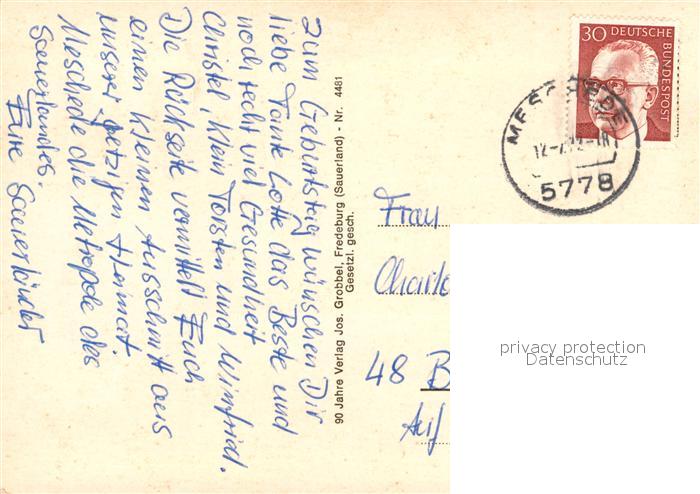 Zum Geburtstag wünschen Dir
liebe Tante Lotte das Beste und
noch recht viel Gesundheit
Christel, Klein Torsten und Winfried.
Die Rückseite vermittelt Euch
einen kleinen Ausschnitt aus
unserer jetzigen Heimat.
Meschede die Metropole des
Sauerlandes.
Eure Sauerländer
90 Jahre Verlag Jos. Grobbel, Fredeburg (Sauerland) - Nr. 4481
Gesetzl. gesch.
30 DEUTSCHE
BUNDESPOST
MESCHEDE
5778
Frau
48 B
Auf
privacy protection
Datenschutz